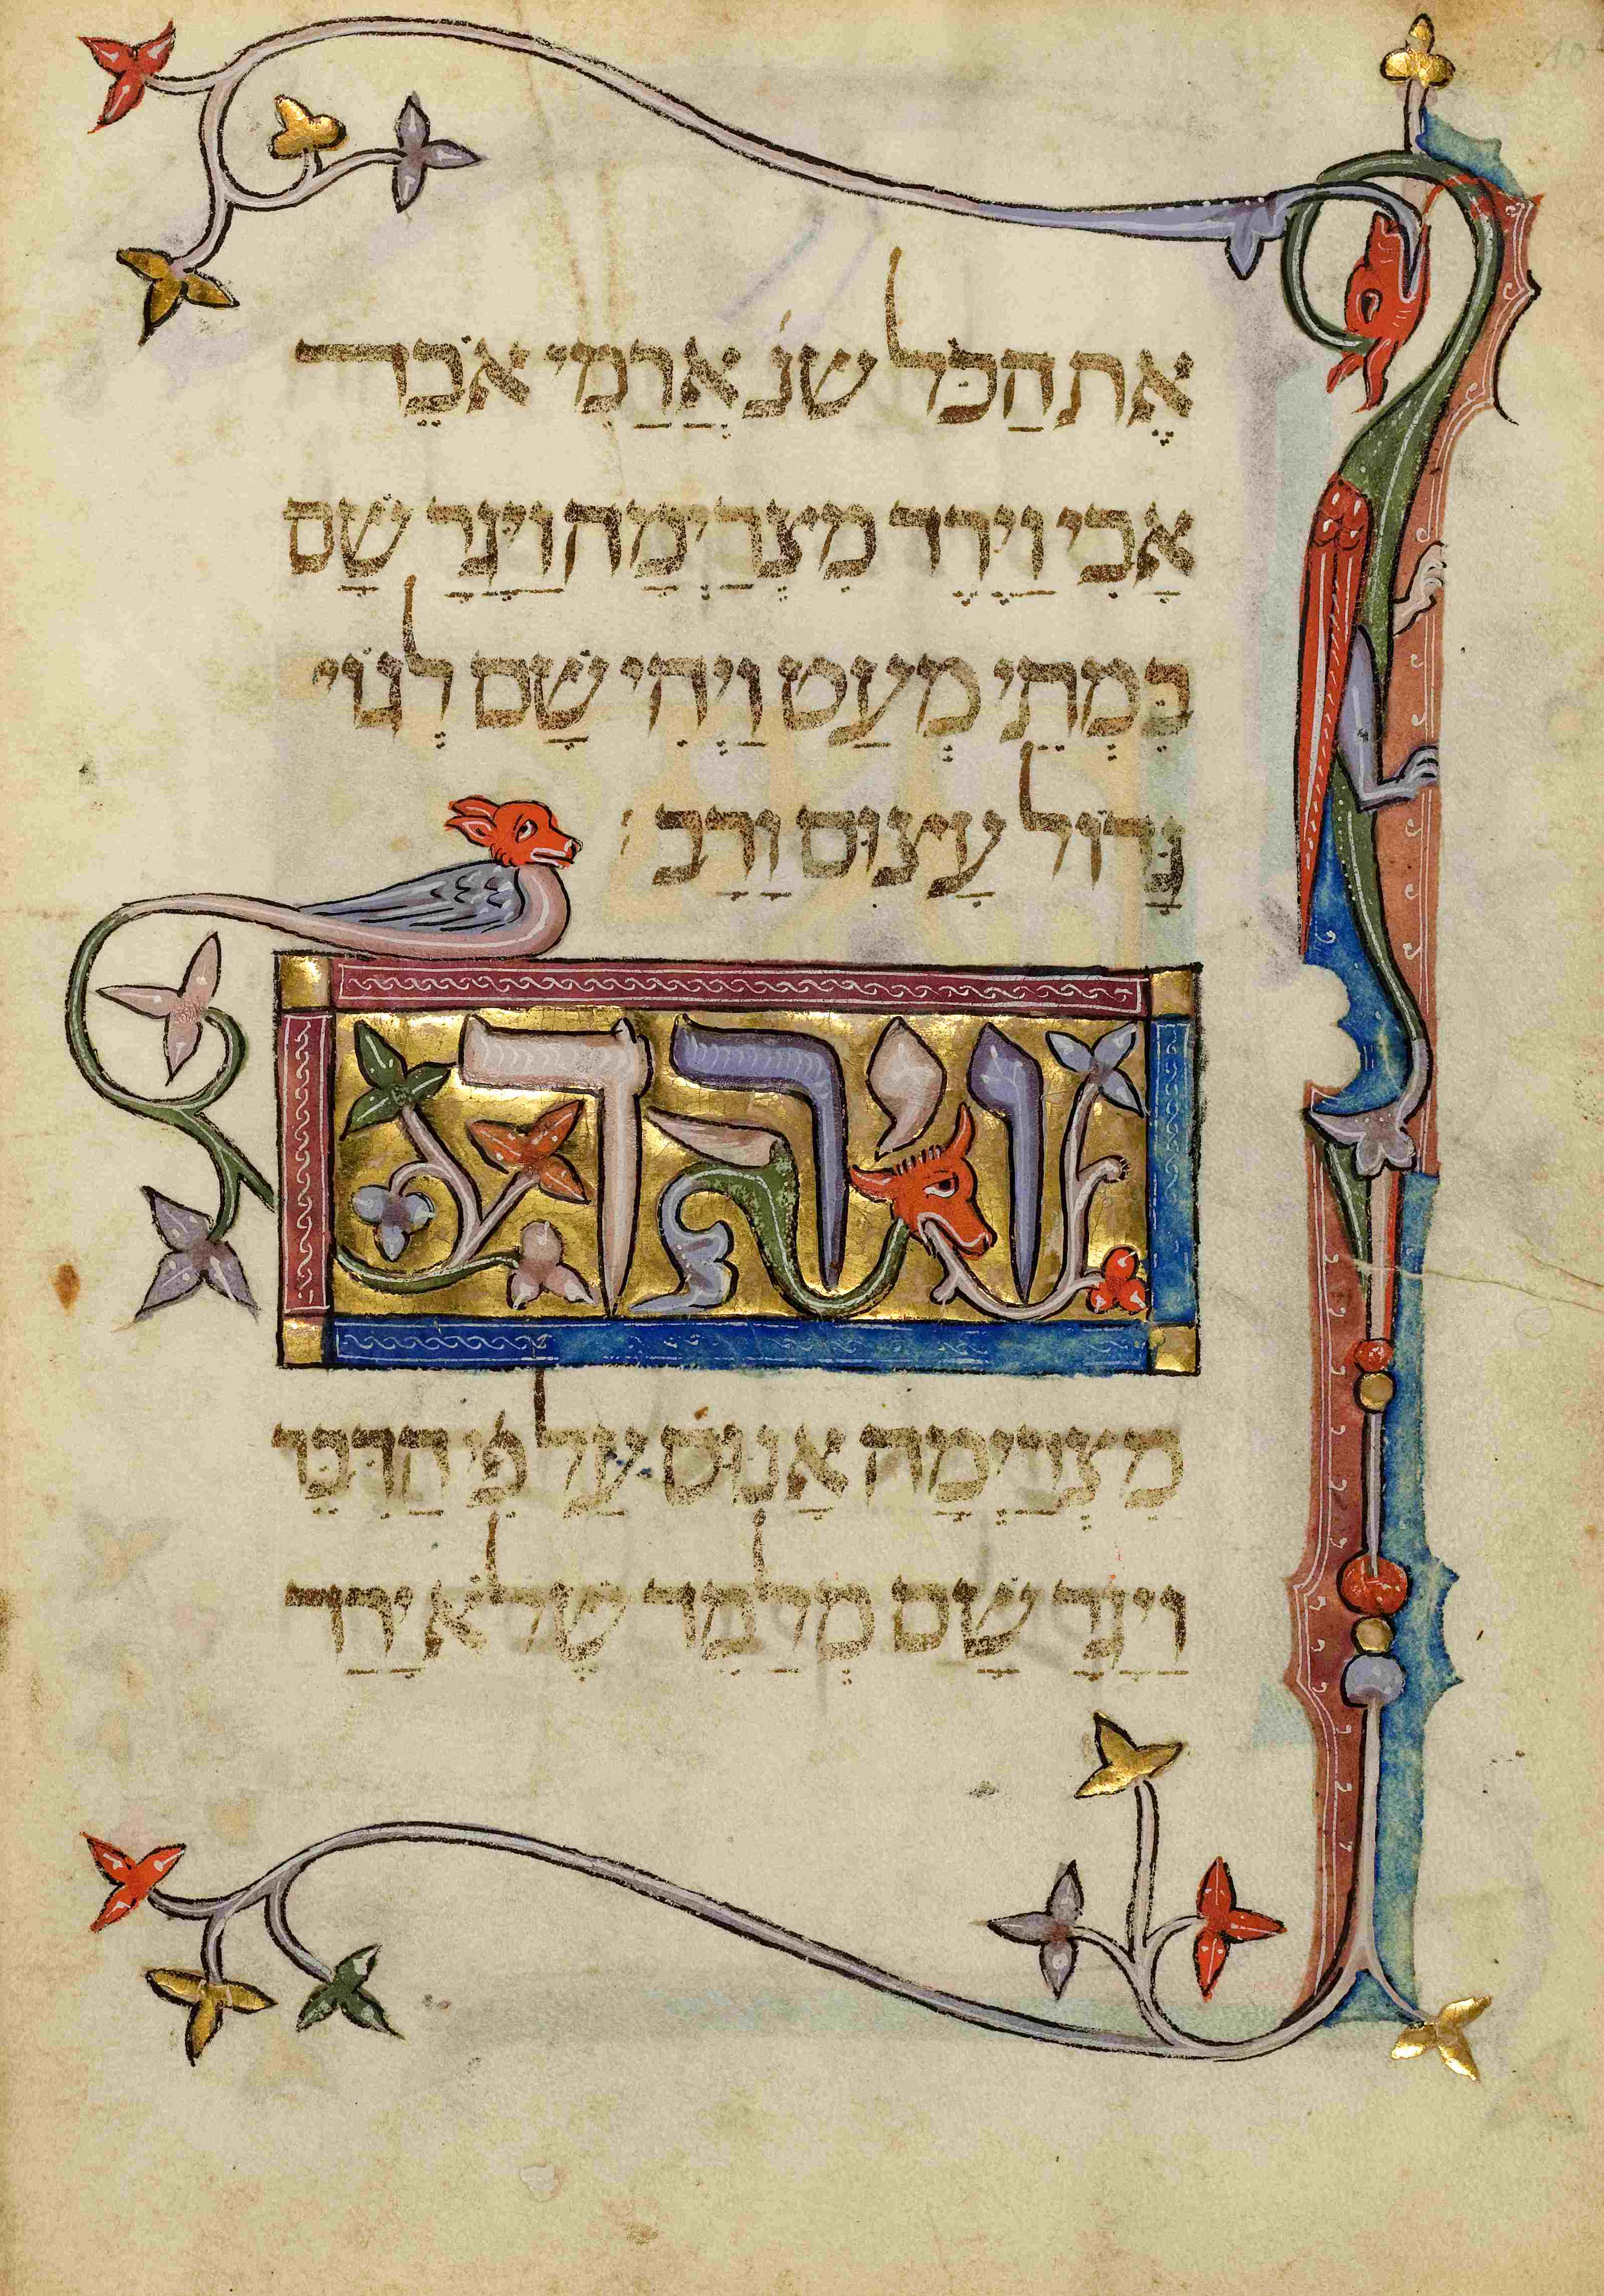 אֶת הַכֹּל שנ֗ אֲרַמִּי אֹבֵד
אָבִי וַיֵּרֶד מִצְרַיְמָה וַיָּגָר שָׁם
בִּמְתֵי מְעַט וַיְהִי שָׁם לְגוֹי
גָּדוֹל עָצוּם וָרָב׃
וירד
מִצְרַיְמָה אָנוּס עַל פִּי הַדִּבֵּר
וַיָּגָר שָׁם מְלַמֵּד שֶׁלֹא יָרַד